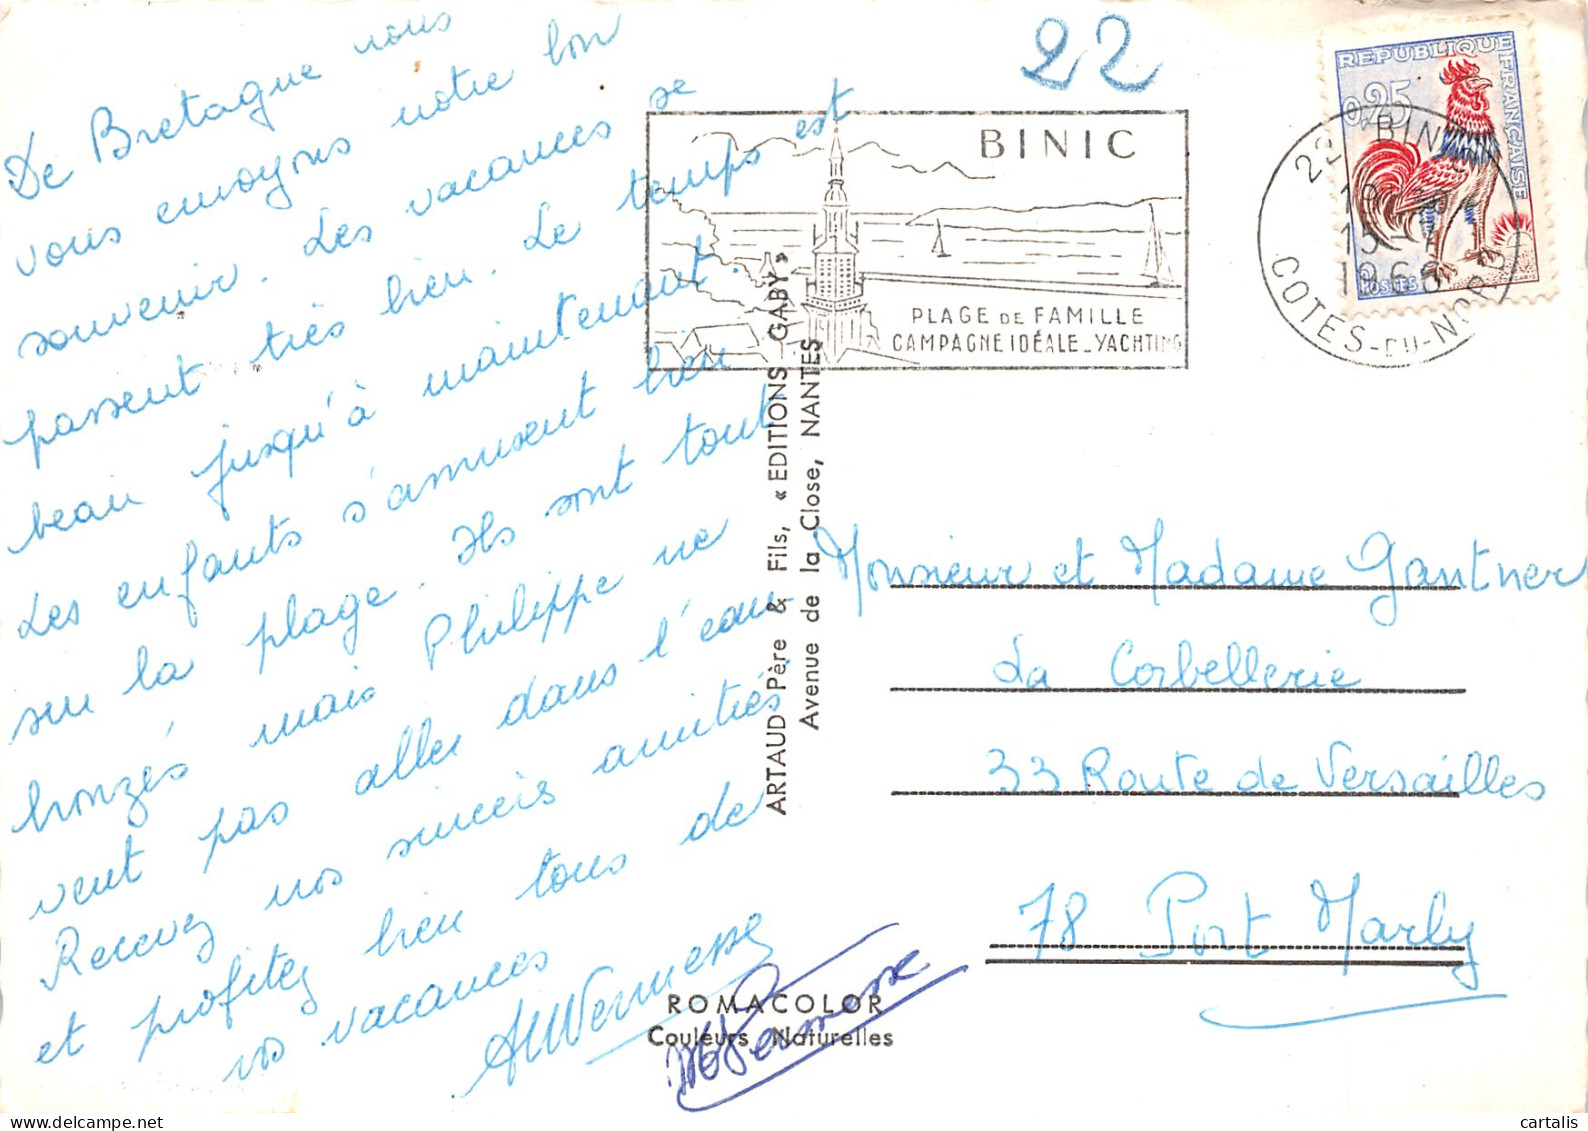 De Bretagne nous
vous envoyons notre bon
souvenir. Les vacances se
passent très bien. Le temps est
beau jusqu'à maintenant.
Les enfants s'amusent bien
sur la plage. Ils sont tout
bronzés mais Philippe ne
veut pas aller dans l'eau.
Recevez nos sincères amitiés
et profitez bien tous de
vos vacances
22
BINIC
PLAGE DE FAMILLE
CAMPAGNE IDÉALE _ YACHTING
REPUBLIQUE FRANÇAISE
0,25
POSTES
22 BINIC
COTES-DU-NORD
ARTAUD Père & Fils, « EDITIONS GABY »
Avenue de la Close, NANTES
Monsieur et Madame Gantner
La Corbellerie
33 Route de Versailles
78 Port Marly
ROMACOLOR
Couleurs Naturelles
cartalis
delcampe.net